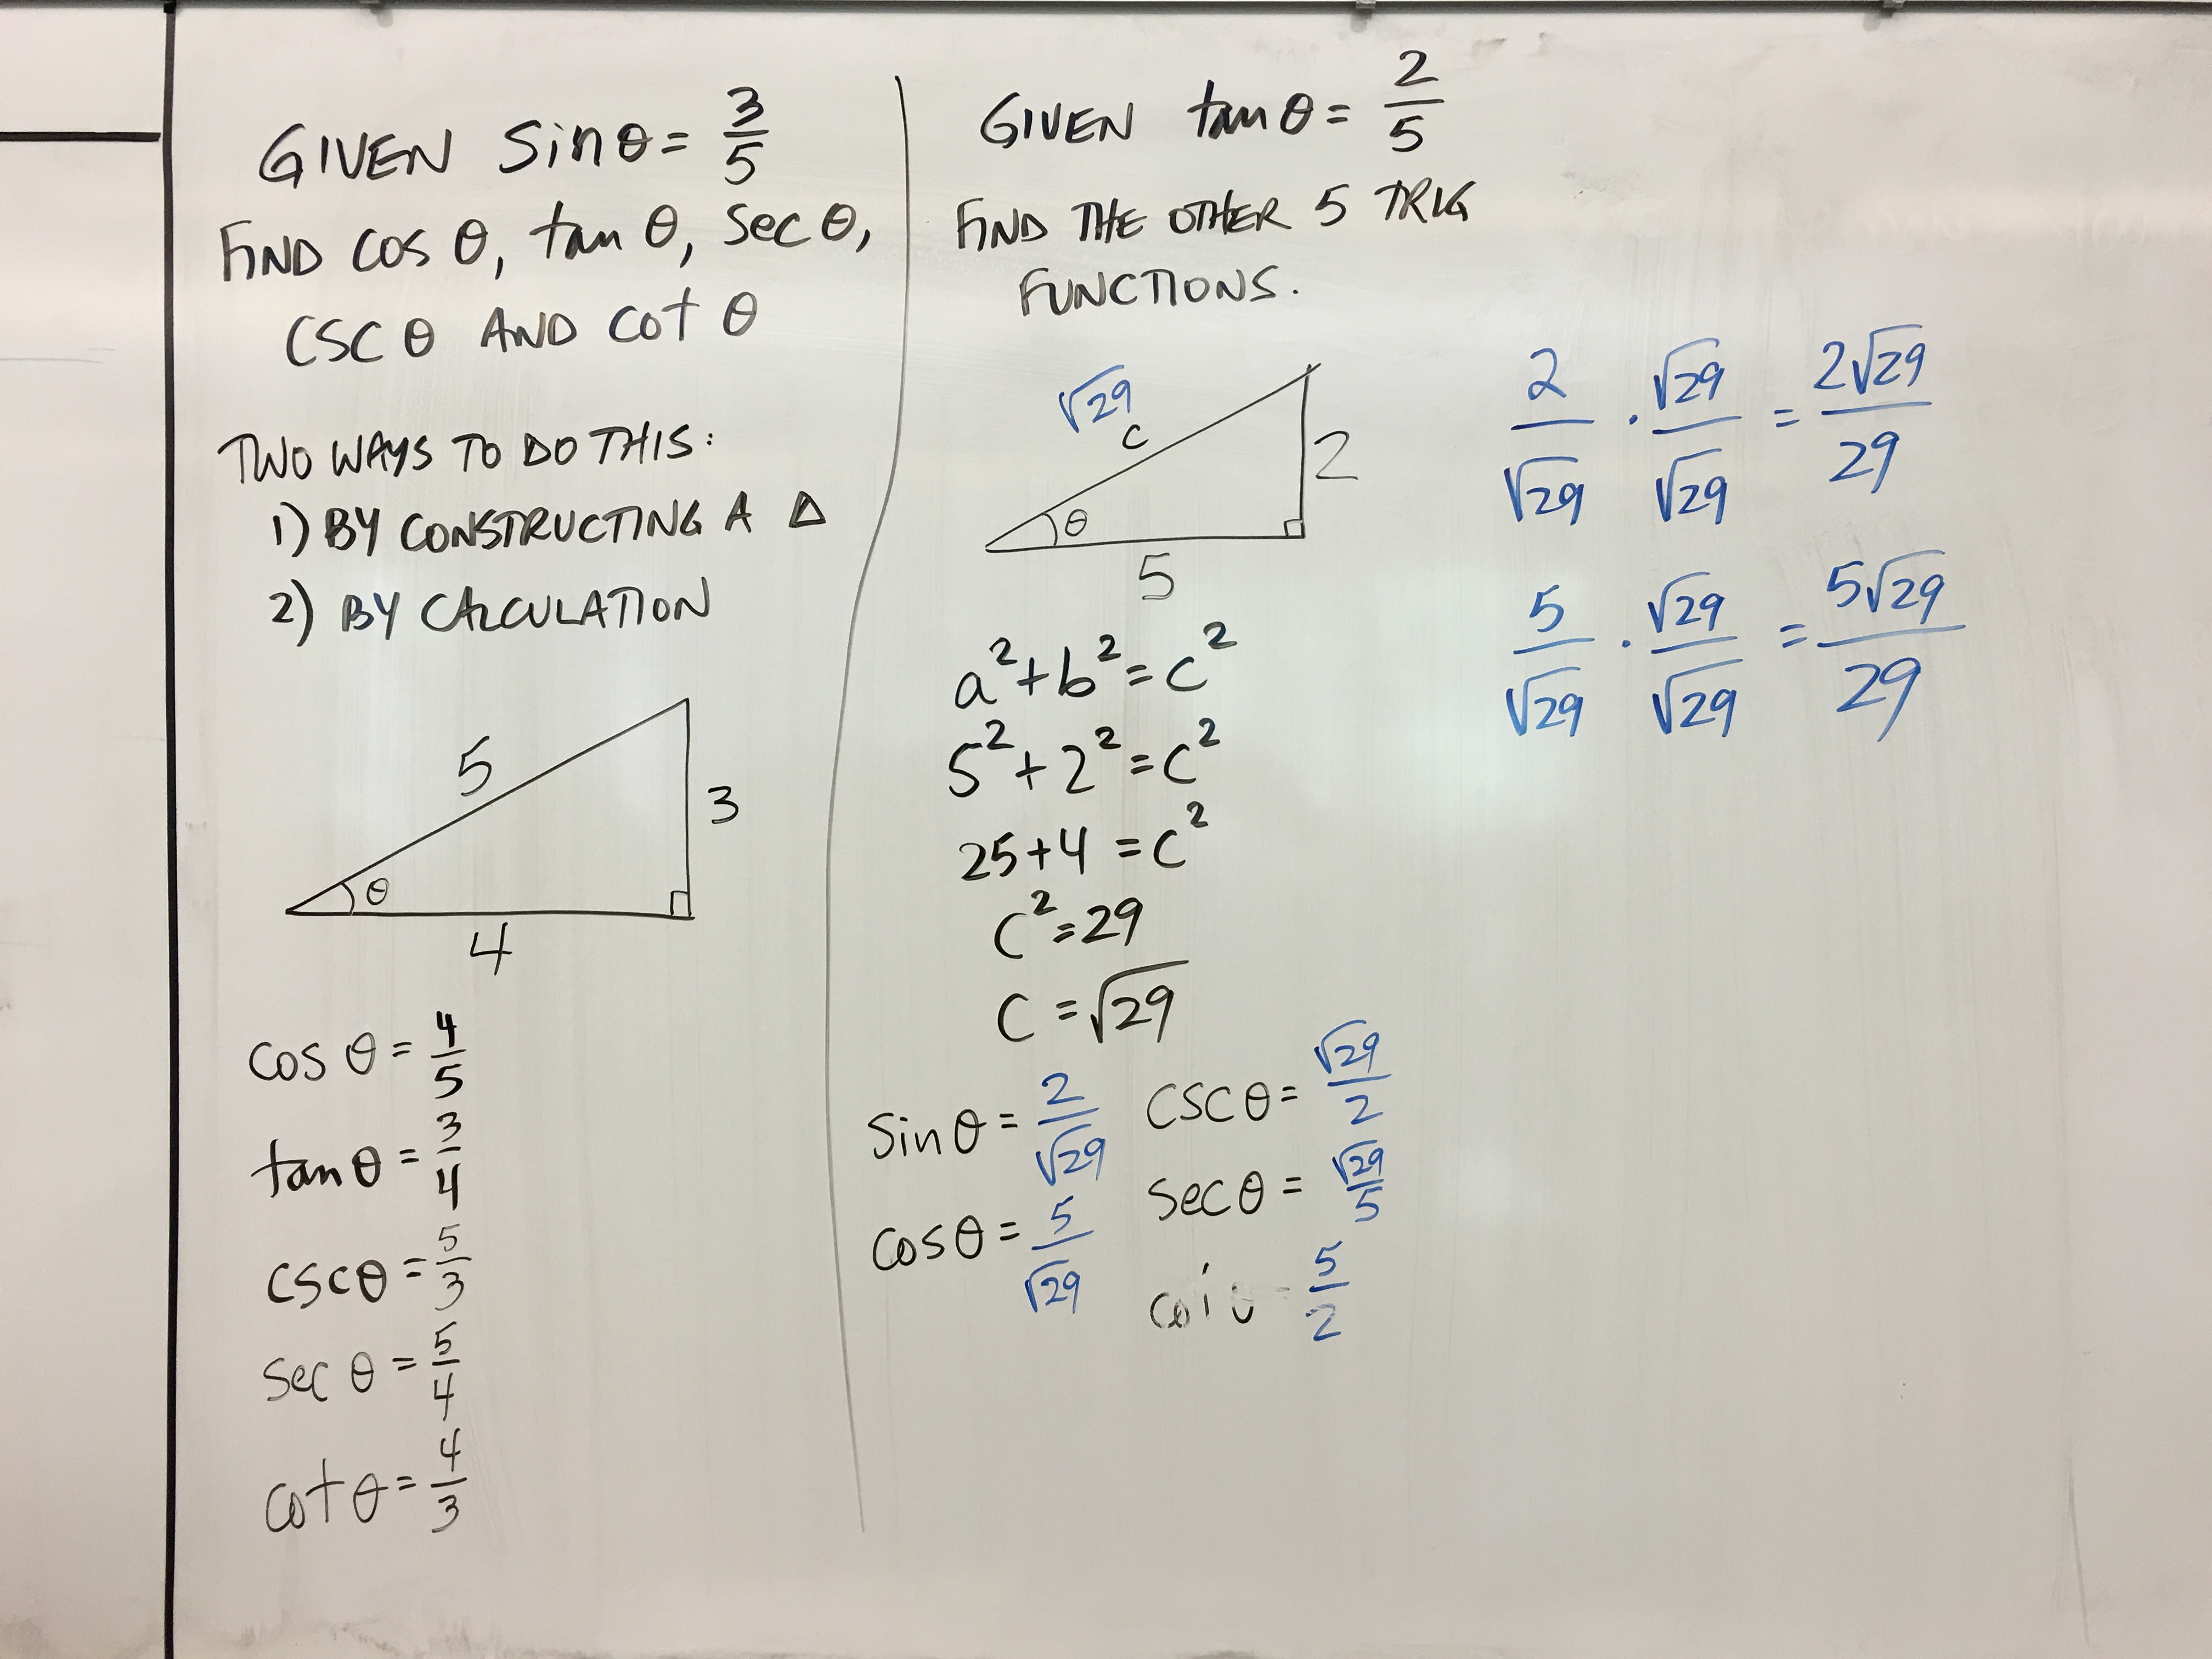 GIVEN sin θ = 3/5
FIND cos θ, tan θ, sec θ,
csc θ AND cot θ
TWO WAYS TO DO THIS:
1) BY CONSTRUCTING A Δ
2) BY CALCULATION
5
3
θ
4
cos θ = 4/5
tan θ = 3/4
csc θ = 5/3
sec θ = 5/4
cot θ = 4/3
GIVEN tan θ = 2/5
FIND THE OTHER 5 TRIG
FUNCTIONS.
√29
c
2
θ
5
a² + b² = c²
5² + 2² = c²
25 + 4 = c²
c² = 29
c = √29
sin θ = 2/√29
cos θ = 5/√29
csc θ = √29/2
sec θ = √29/5
5/2
2/√29 · √29/√29 = 2√29/29
5/√29 · √29/√29 = 5√29/29